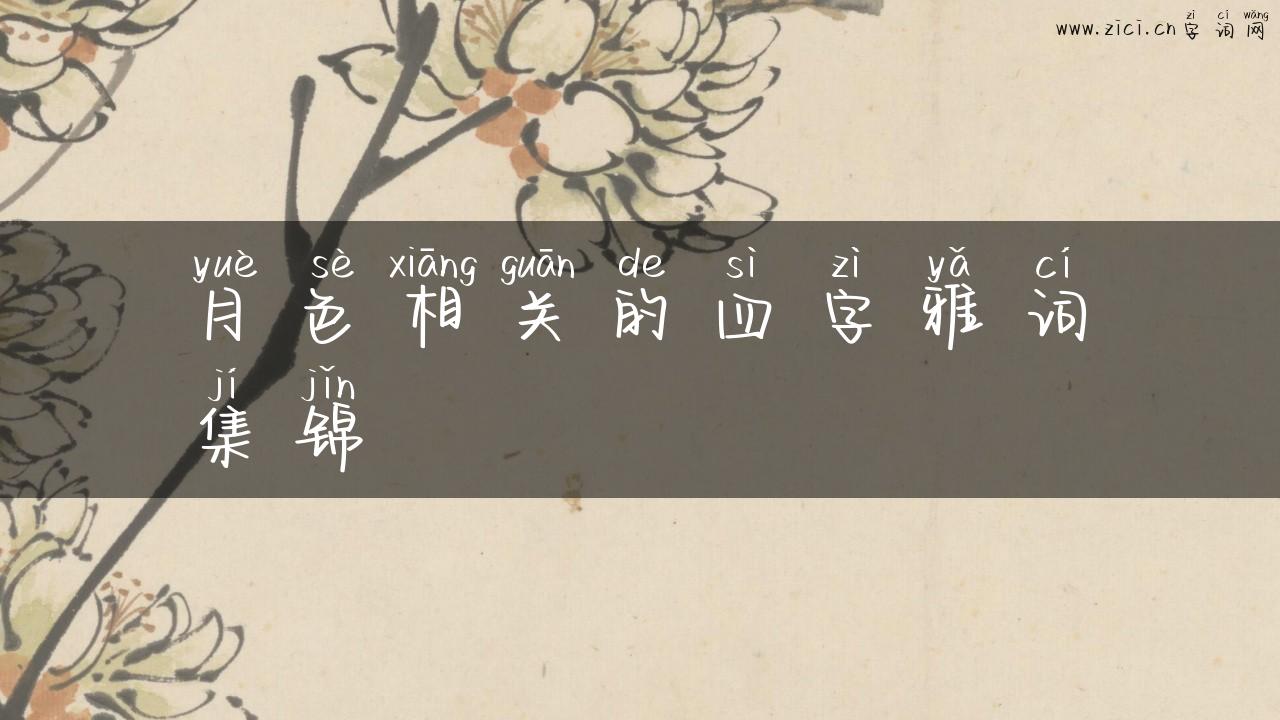 www.zici.cn字词网
zì cí wǎng
yuè sè xiāng guān de sì zì yǎ cí
月色相关的四字雅词
jí jǐn
集锦